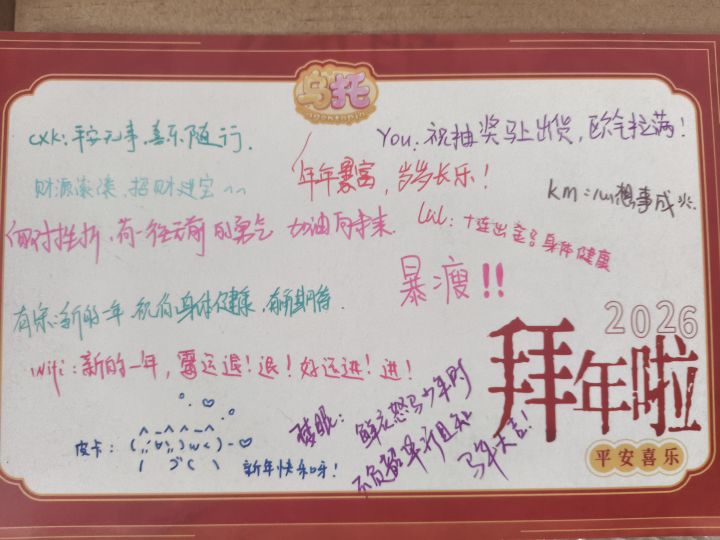 乌托
cxk：平安无事.喜乐随行.
You：祝抽奖马上出货，欧气拉满！
财源滚滚，招财进宝 ^^
年年暴富，岁岁长乐！
km：心想事成
面对挫折，荷一往无前的勇气 加油向未来
lul：十连出金 身体健康
暴瘦!!
新的一年，祝你身体健康，有所期待.
Wifi：新的一年，霉运退！退！好运进！进！
2026
拜年啦
平安喜乐
皮卡：
新年快乐呀！
梦眠：鲜衣怒马少年时
不负韶华 且
马年大吉！